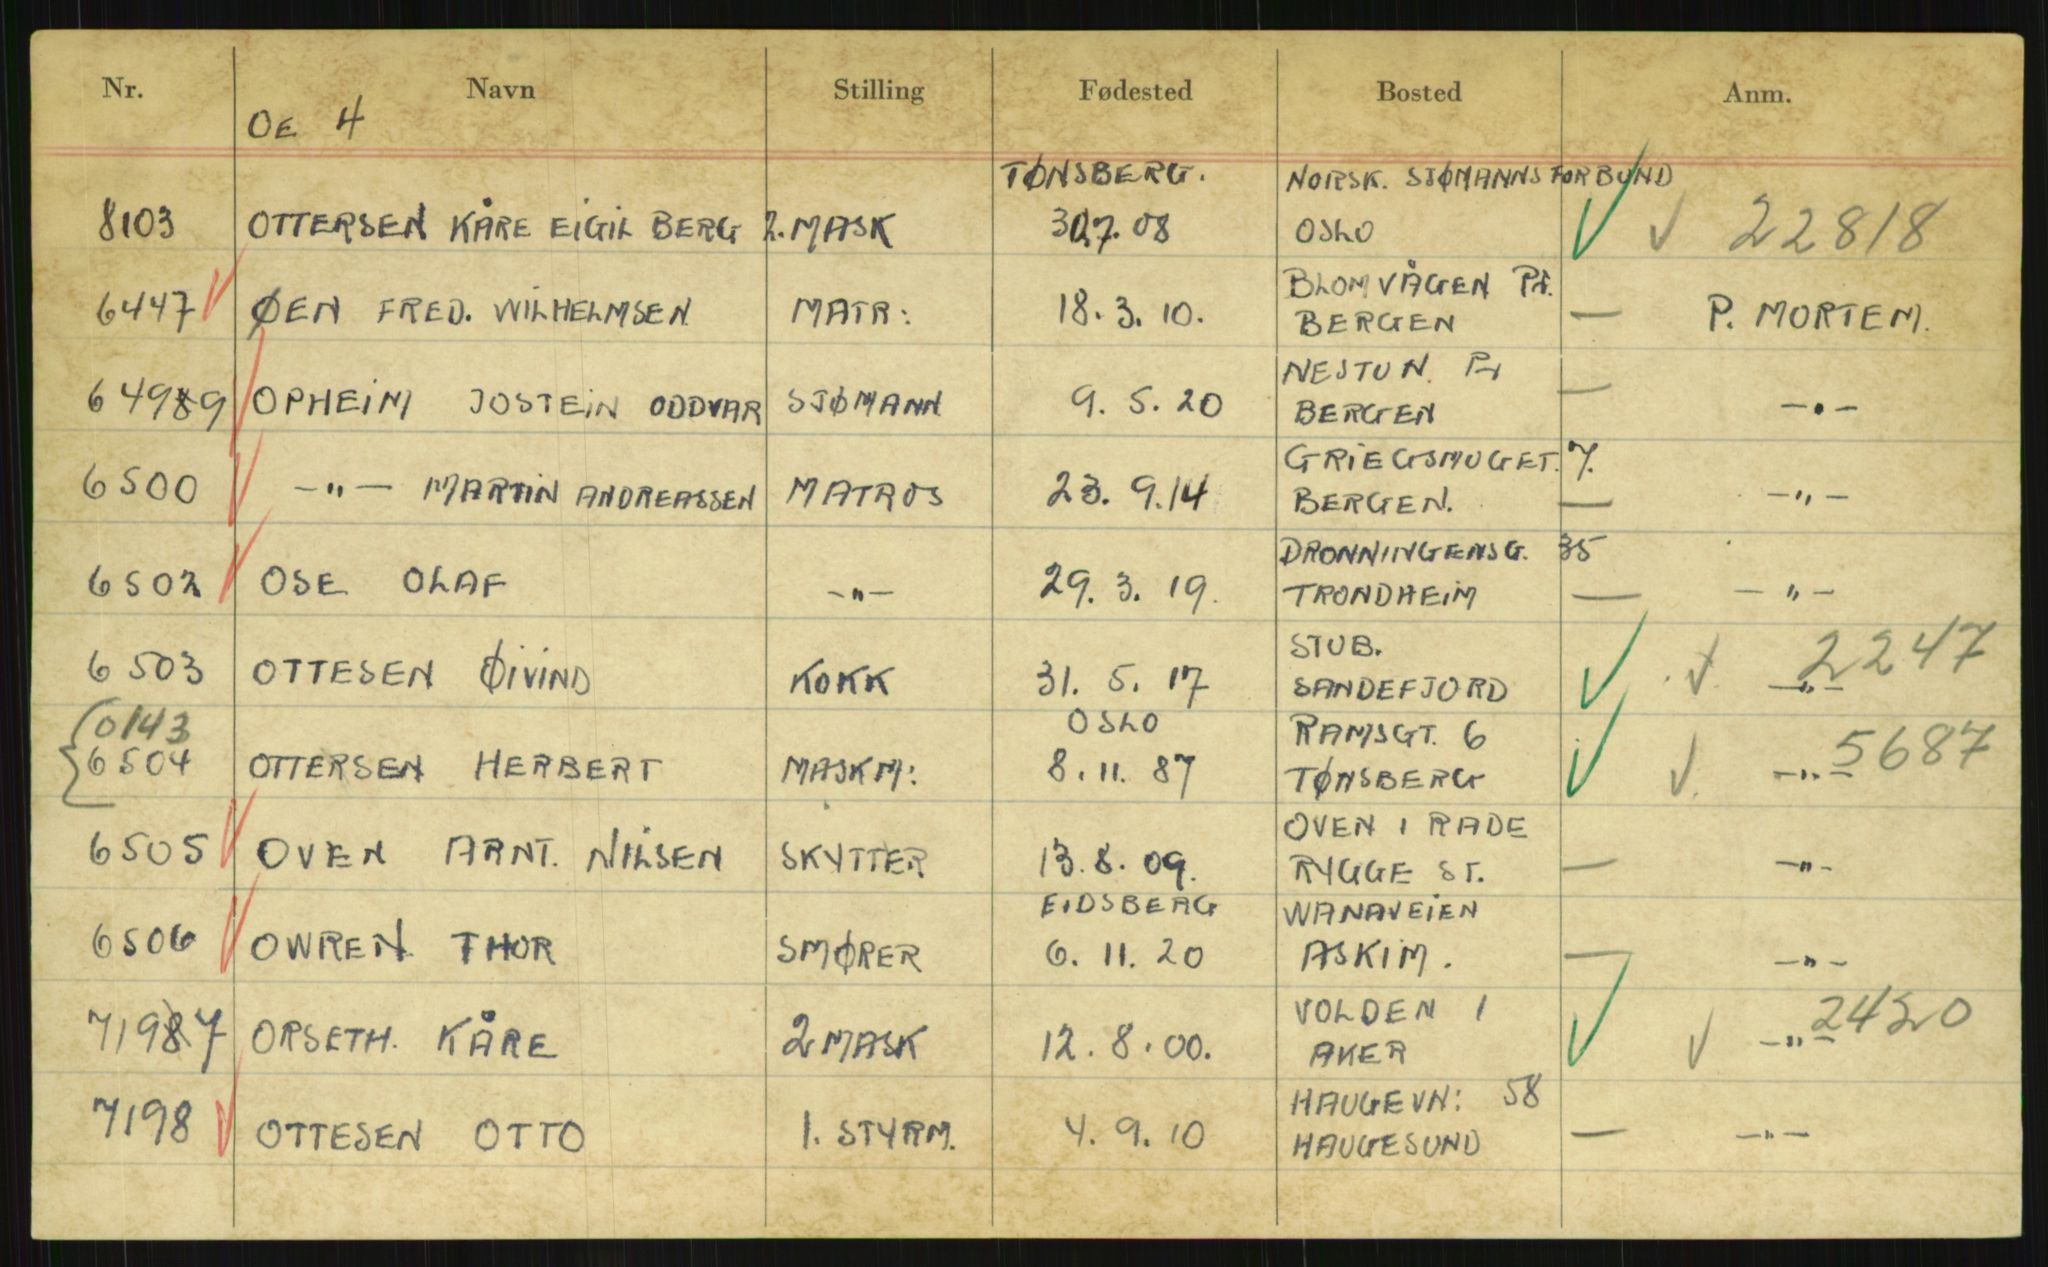 Nr. Navn Stilling Fødested Bosted Anm.
OE 4
TØNSBERG. NORSK. SJØMANNSFORBUND
8103 OTTERSEN KÅRE EIGIL BERG 2. MASK 30.7.08 OSLO 22818
BLOMVÅGEN Pr.
6447 ØEN FRED. WILHELMSEN MATR: 18. 3. 10. BERGEN — P. MORTEM.
NESTUN. Pr
64989 OPHEIM JOSTEIN ODDVAR SJØMANN 9. 5. 20 BERGEN — —"—
GRIEGSMUGET. 7.
6500 —"— MARTIN ANDREASSEN MATROS 23. 9.14 BERGEN. — —"—
DRONNINGENSG. 35
6502 OSE OLAF —"— 29. 3. 19. TRONDHEIM — —"—
STUB. 2247
6503 OTTESEN ØIVIND KOKK 31. 5. 17 SANDEFJORD —"—
0143 OSLO RAMSGT. 6
6504 OTTERSEN HERBERT MASKM: 8. 11. 87 TØNSBERG —"— 5687
OVEN I RADE
6505 OVEN ARNT. NILSEN SKYTTER 13. 8. 09. RYGGE ST. — —"—
EIDSBERG WANAVEIEN
6506 OWREN THOR SMØRER 6. 11. 20 ASKIM. — —"—
VOLDEN I 2420
71987 ORSETH. KÅRE 2 MASK 12. 8. 00. AKER —"—
HAUGEVN: 58
7198 OTTESEN OTTO 1. STYRM. 4. 9. 10 HAUGESUND — —"—